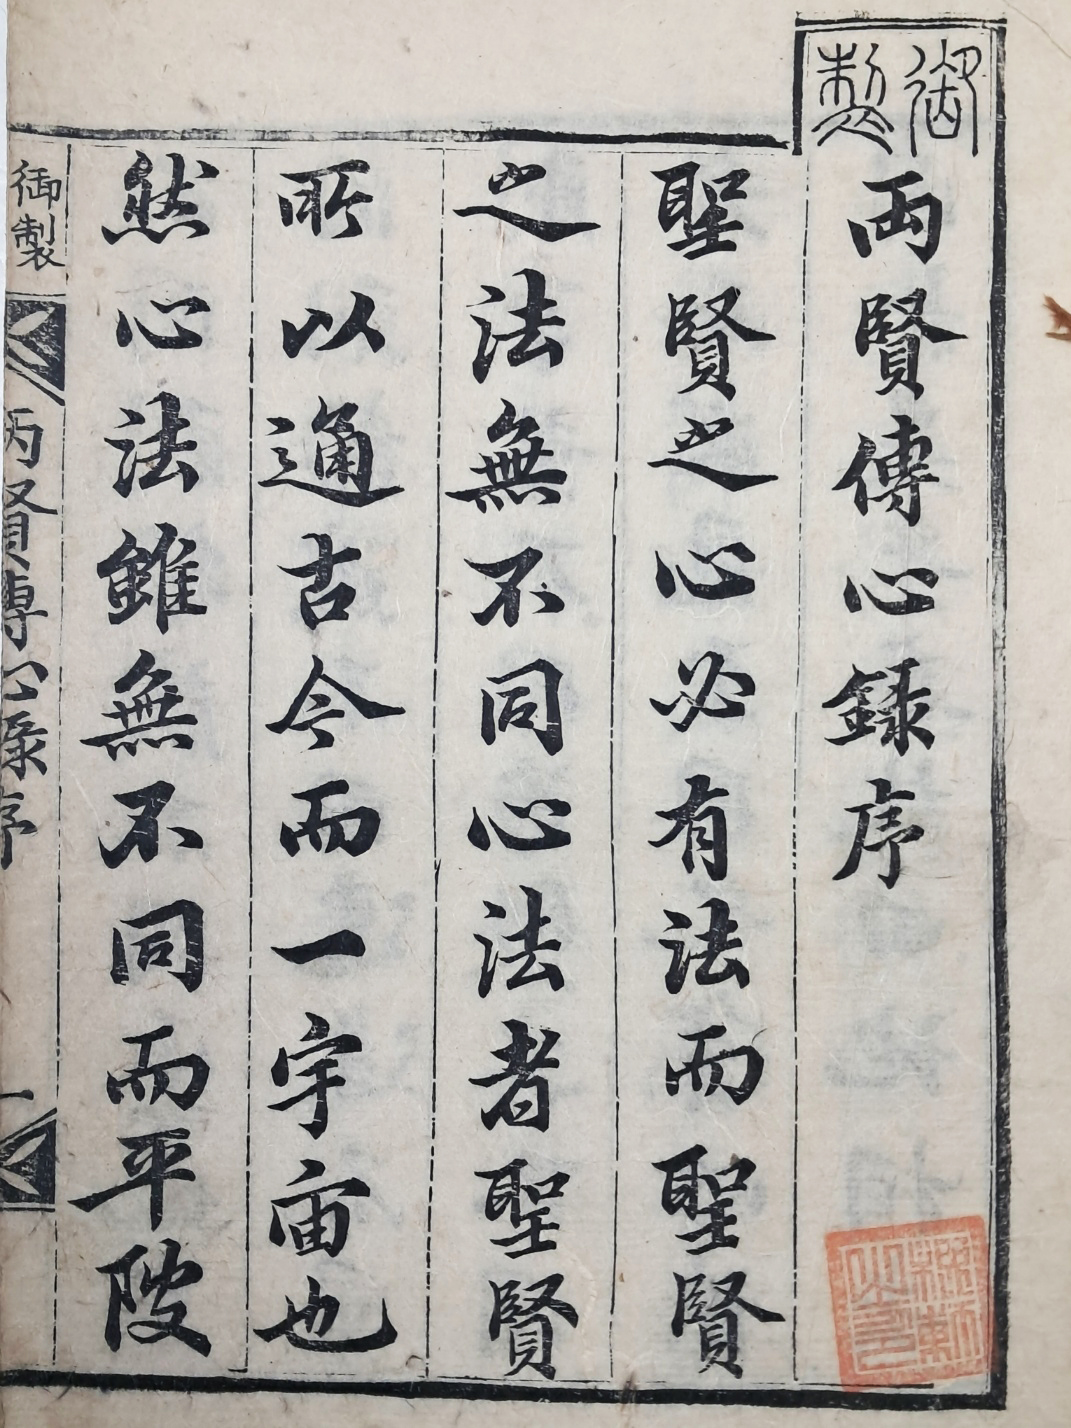 御製
两賢傳心録序
聖賢之心必有法而聖賢
之法無不同心法者聖賢
所以通古今而一宇宙也
然心法雖無不同而平陂
御製
两賢傳心録序
一